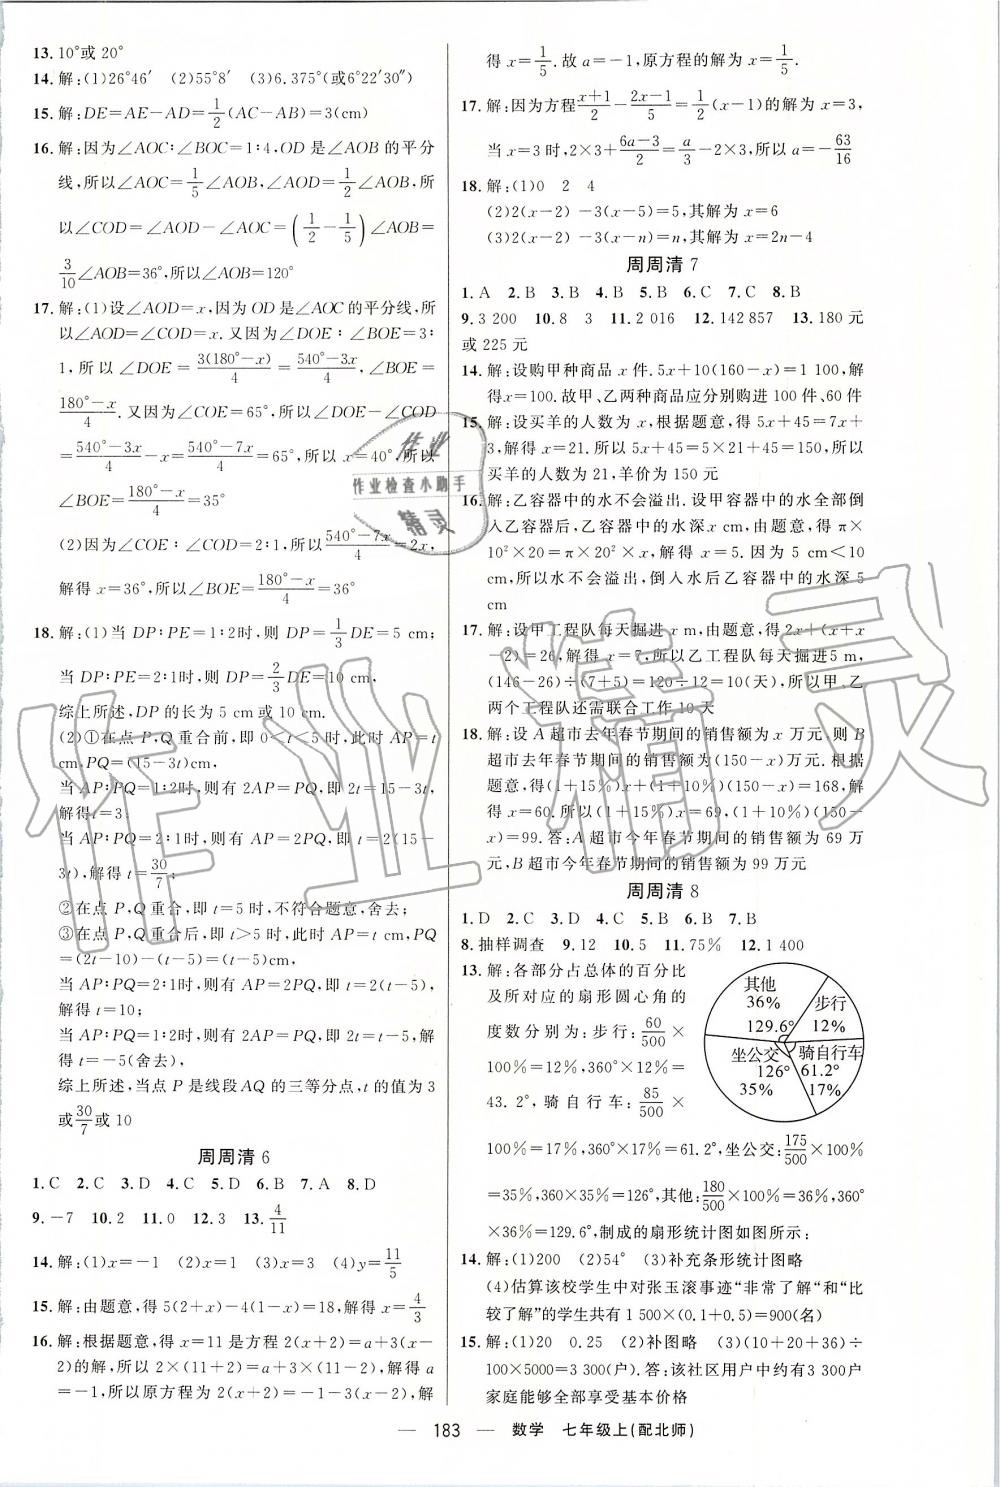 13. 10°或 20°
14. 解:(1)26°46′ (2)55°8′ (3)6.375°(或6°22′30″)
15. 解:DE=AE-AD=1/2(AC-AB)=3(cm)
16. 解:因为∠AOC∶∠BOC=1∶4,OD 是∠AOB 的平分
线,所以∠AOC=1/5∠AOB,∠AOD=1/2∠AOB,所
以∠COD=∠AOD-∠AOC=(1/2-1/5)∠AOB=
3/10∠AOB=36°,所以∠AOB=120°
17. 解:(1)设∠AOD=x,因为 OD 是∠AOC 的平分线,所
以∠AOD=∠COD=x.又因为∠DOE∶∠BOE=3∶
1,所以∠DOE=3(180°-x)/4=540°-3x/4,∠BOE=
180°-x/4.又因为∠COE=65°,所以∠DOE-∠COD
=540°-3x/4-x=540°-7x/4=65°,所以 x=40°,所以
∠BOE=180°-x/4=35°
(2)因为∠COE∶∠COD=2∶1,所以540°-7x/4=2x,
解得 x=36°,所以∠BOE=180°-x/4=36°
18. 解:(1)当 DP∶PE=1∶2时,则 DP=1/3DE=5 cm;
当 DP∶PE=2∶1时,则 DP=2/3DE=10 cm,
综上所述,DP 的长为 5 cm或 10 cm.
(2)①在点 P,Q 重合前,即 0<t<5 时,此时 AP=t
cm,PQ=(15-3t)cm,
当 AP∶PQ=1∶2时,则有 2AP=PQ,即 2t=15-3t,
解得 t=3;
当 AP∶PQ=2∶1时,则有 AP=2PQ,即 t=2(15-
3t),解得 t=30/7;
②在点 P,Q 重合,即 t=5 时,不符合题意,舍去;
③在点 P,Q 重合后,即 t>5 时,此时 AP=t cm,PQ
=(2t-10)-(15-t)=(3t-15)cm,
当 AP∶PQ=2∶1时,则有 AP=2PQ,即 t=2(t-5),
解得 t=10;
当 AP∶PQ=1∶2时,则有 2AP=PQ,即 2t=t-5,解
得 t=-5(舍去),
综上所述,当点 P 是线段 AQ 的三等分点,t 的值为 3
或30/7或 10
周周清 6
1. C 2. C 3. D 4. C 5. D 6. B 7. A 8. D
9. -7 10. 2 11. 0 12. 3 13. 4/11
14. 解:(1)x=-1 (2)x=-9 (3)x=1 (4)y=11/5
15. 解:由题意,得 5(2+x)-4(1-x)=18,解得 x=4/3
16. 解:根据题意,得 x=11 是方程 2(x+2)=a+3(x-
2)的解,所以 2×(11+2)=a+3×(11-2),解得 a
=-1,所以原方程为 2(x+2)=-1-3(x-2),解
得 x=1/5.故 a=-1,原方程的解为 x=1/5.
17. 解:因为方程x+1/2-2x-1/5=1/2(x-1)的解为 x=3,
当 x=3 时,2×3+6a-3/2=a/3-2×3,所以 a=-63/16
18. 解:(1)0 2 4
(2)2(x-2)-3(x-5)=5,其解为 x=6
(3)2(x-2)-3(x-n)=n,其解为 x=2n-4
周周清 7
1. A 2. B 3. B 4. B 5. B 6. C 7. C 8. B
9. 3 200 10. 8 3 11. 2 016 12. 142 857 13. 180 元
或 225 元
14. 解:设购甲种商品 x 件. 5x+10(160-x)=1 100,解
得x=100.故甲、乙两种商品应分别购进 100 件、60件
15. 解:设买羊的人数为 x,根据题意,得 5x+45=7x+
3,解得 x=21.所以 5x+45=5×21+45=150,所以
买羊的人数为 21,羊价为 150 元
16. 解:乙容器中的水不会溢出.设甲容器中的水全部倒
入乙容器后,乙容器中的水深x cm,由题意,得 π×
10²×20=π×20²×x,解得 x=5.因为 5 cm<10
cm,所以水不会溢出,倒入水后乙容器中的水深 5
cm
17. 解:设甲工程队每天掘进 x m,由题意,得 2x+(x+x
-2)=26,解得 x=7,所以乙工程队每天掘进5 m,
(146-26)÷(7+5)=120÷12=10(天),所以甲、乙
两个工程队还需联合工作 10 天
18. 解:设 A 超市去年春节期间的销售额为 x 万元,则 B
超市去年春节期间的销售额为(150-x)万元.根据
题意,得(1+15%)x+(1+10%)(150-x)=168,解
得 x=60.所以(1+15%)x=69,(1+10%)(150-
x)=99.答:A 超市今年春节期间的销售额为 69 万
元,B 超市今年春节期间的销售额为 99 万元
周周清 8
1. D 2. C 3. D 4. C 5. B 6. B 7. B
8. 抽样调查 9. 12 10. 5 11. 75% 12. 1 400
13. 解:各部分占总体的百分比
及所对应的扇形圆心角的
度数分别为:步行:60/500×
100%=12%,360°×12%=
43.2°,骑自行车:85/500×
100%=17%,360°×17%=61.2°,坐公交:175/500×100%
=35%,360×35%=126°,其他:180/500×100%=36%,360°
×36%=129.6°,制成的扇形统计图如图所示:
其他
36%
129.6°
步行
12%
坐公交
126°
35%
骑自行车
61.2°
17%
14. 解:(1)200 (2)54° (3)补充条形统计图略
(4)估算该校学生中对张玉滚事迹“非常了解”和“比
较了解”的学生共有 1 500×(0.1+0.5)=900(名)
15. 解:(1)20 0.25 (2)补图略 (3)(10+20+36)÷
100×5000=3 300(户).答:该社区用户中约有3 300
户家庭能够全部享受基本价格
— 183 — 数学 七年级上(配北师)
作业
作业检查小助手
精灵
作业精灵